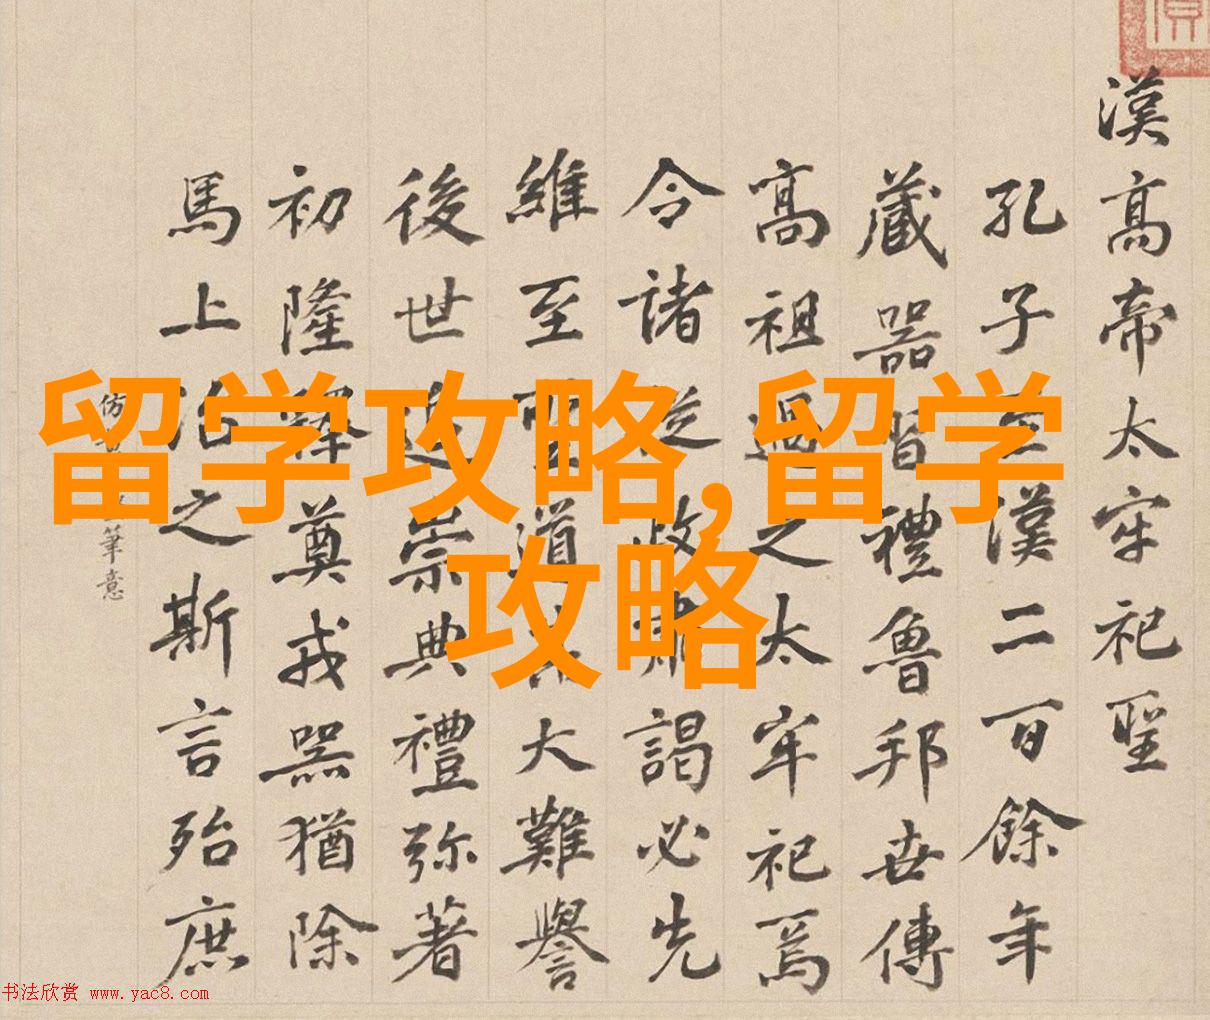 漢高帝太牢祀聖
孔子至漢二百餘年
藏器禮魯邦世傳
高祖過之太牢祀焉
令諸從政斯謁必先
維至聖道大難譽
後世追崇典禮弥著
初隆釋奠戎器猶除
馬上治之斯言殆庶
仿筆意
留学攻略,留学
攻略
书法欣赏 www.yac8.com